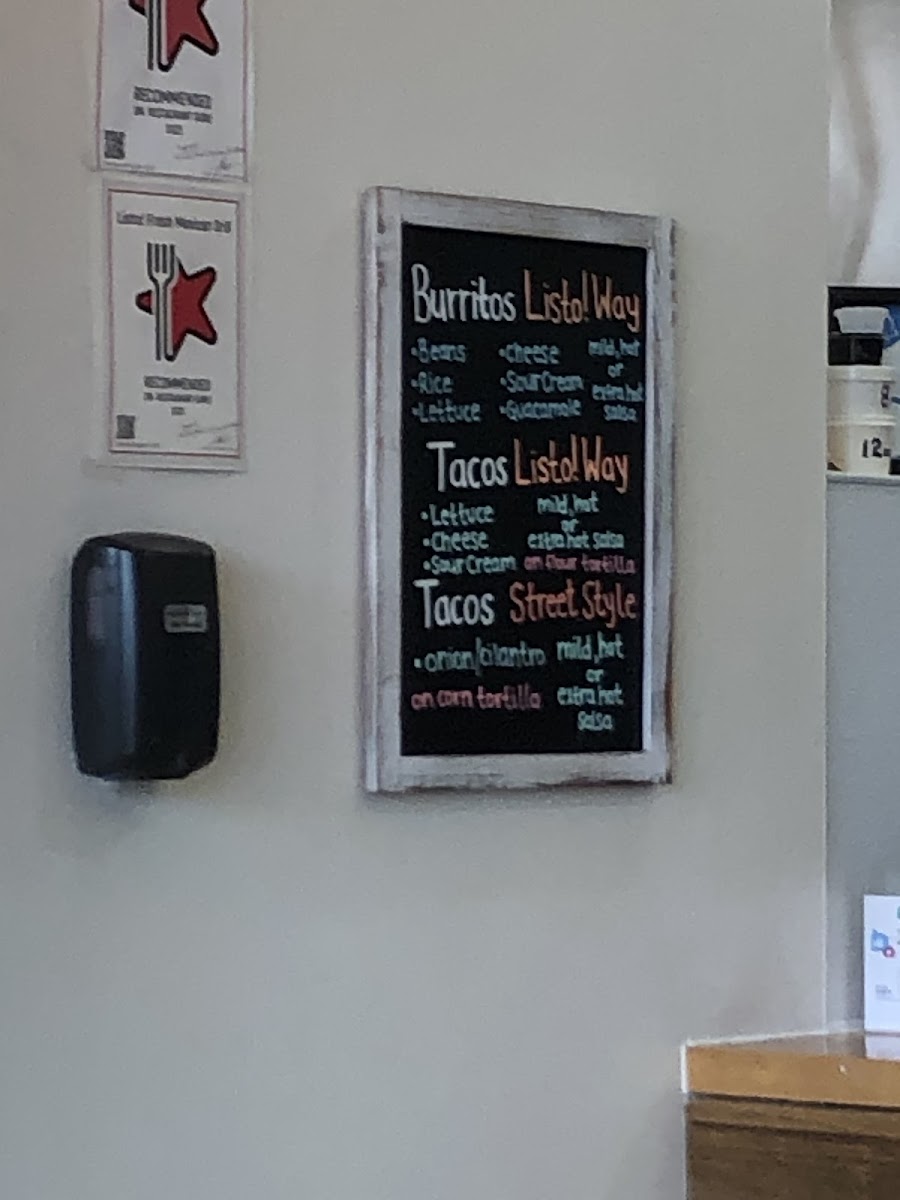 RECOMMENDED
ON RESTAURANT GURU
Listo! Fresh Mexican Grill
RECOMMENDED
ON RESTAURANT GURU
Burritos Listo! Way
•Beans •Cheese mild, hot
or
•Rice •Sour Cream extra hot
•Lettuce •Guacamole salsa
Tacos Listo! Way
•Lettuce mild, hot
or
•Cheese extra hot salsa
•Sour Cream on flour tortilla
Tacos Street Style
•onion/cilantro mild, hot
or
on corn tortilla extra hot
salsa
12